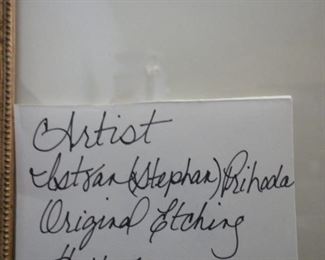 Artist
Istvan (Stephan) Prihoda
Original Etching